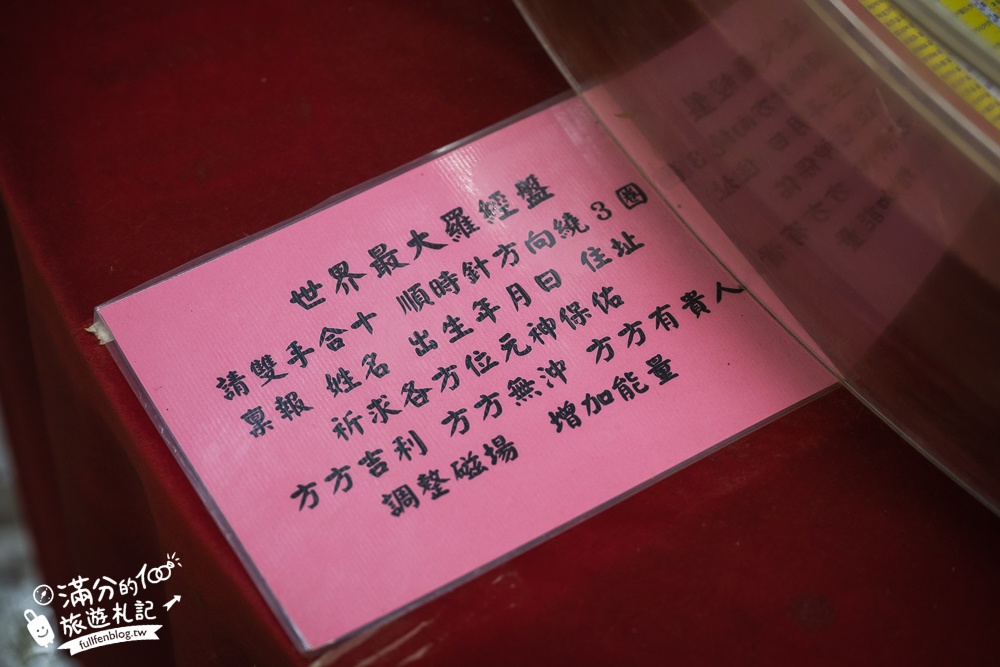 世界最大羅經盤
請雙手合十 順時針方向繞3圈
稟報 姓名 出生年月日 住址
祈求各方位元神保佑
方方吉利 方方無沖 方方有貴人
調整磁場 增加能量
滿分的100
旅遊札記
fullfenblog.tw